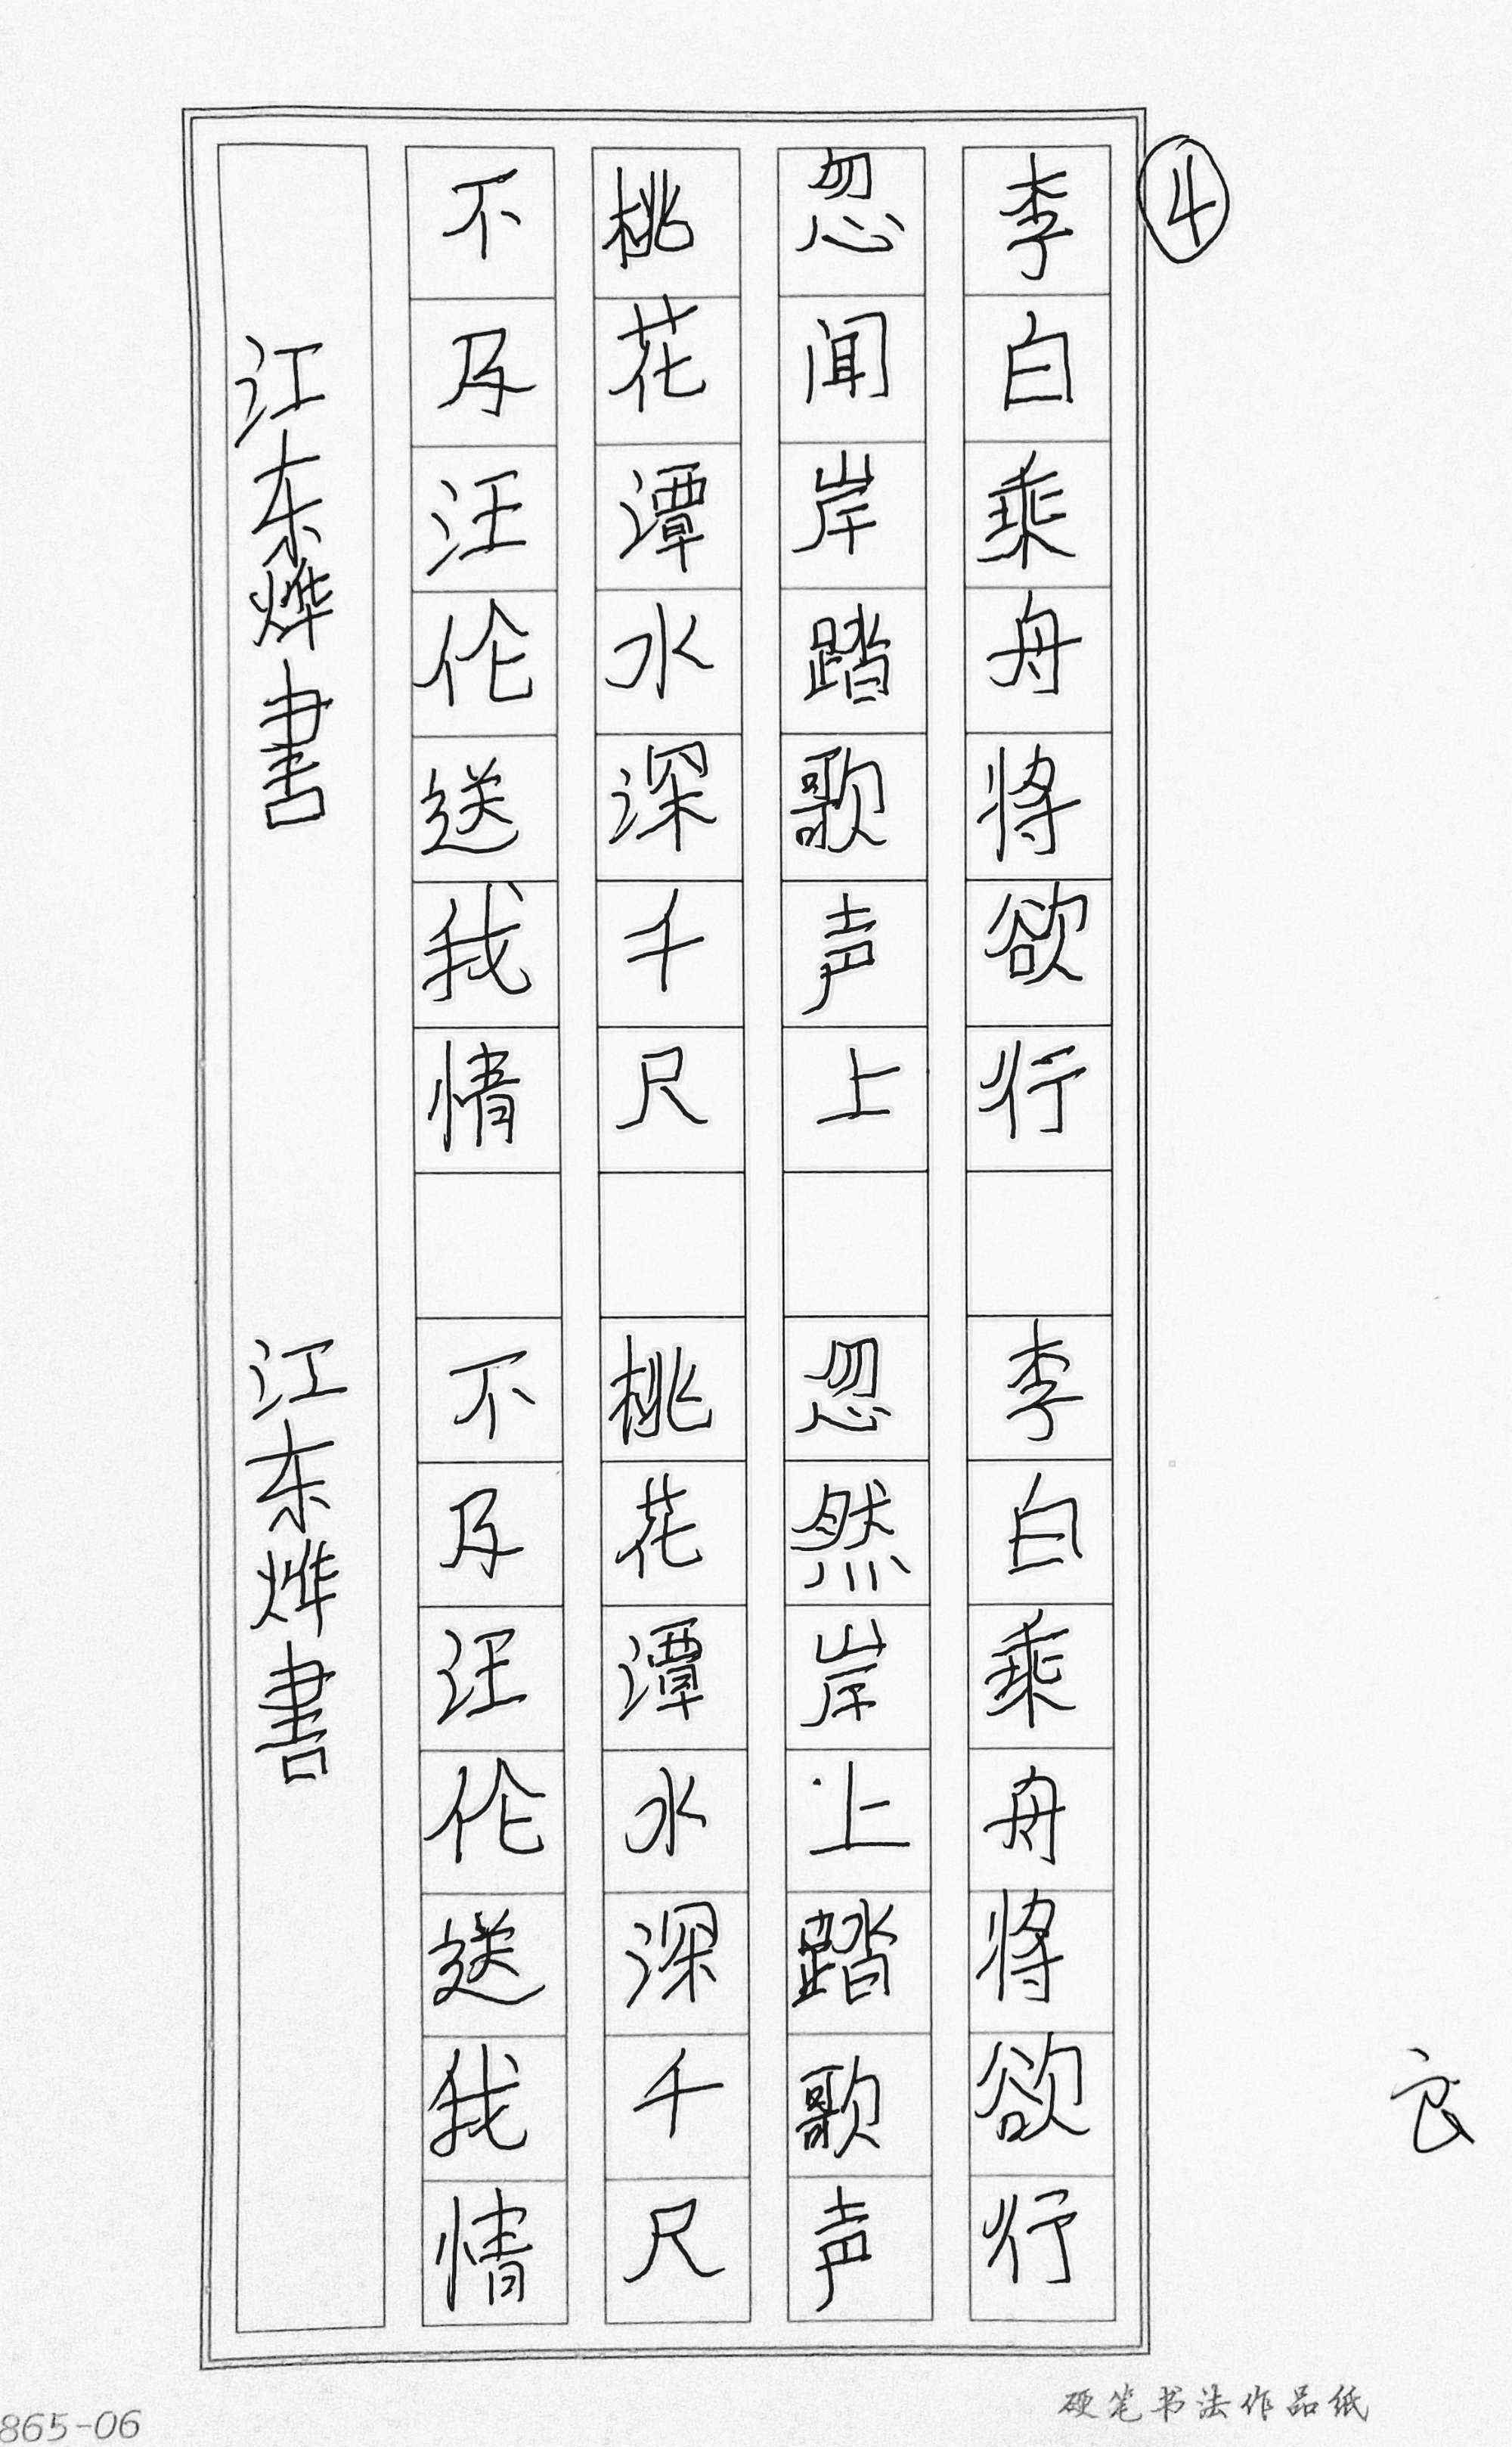 ④
李白乘舟将欲行
李白乘舟将欲行
忽闻岸踏歌声上
忽然岸上踏歌声
桃花潭水深千尺
桃花潭水深千尺
不及汪伦送我情
不及汪伦送我情
江东烨書
江东烨書
良
硬笔书法作品纸
865-06